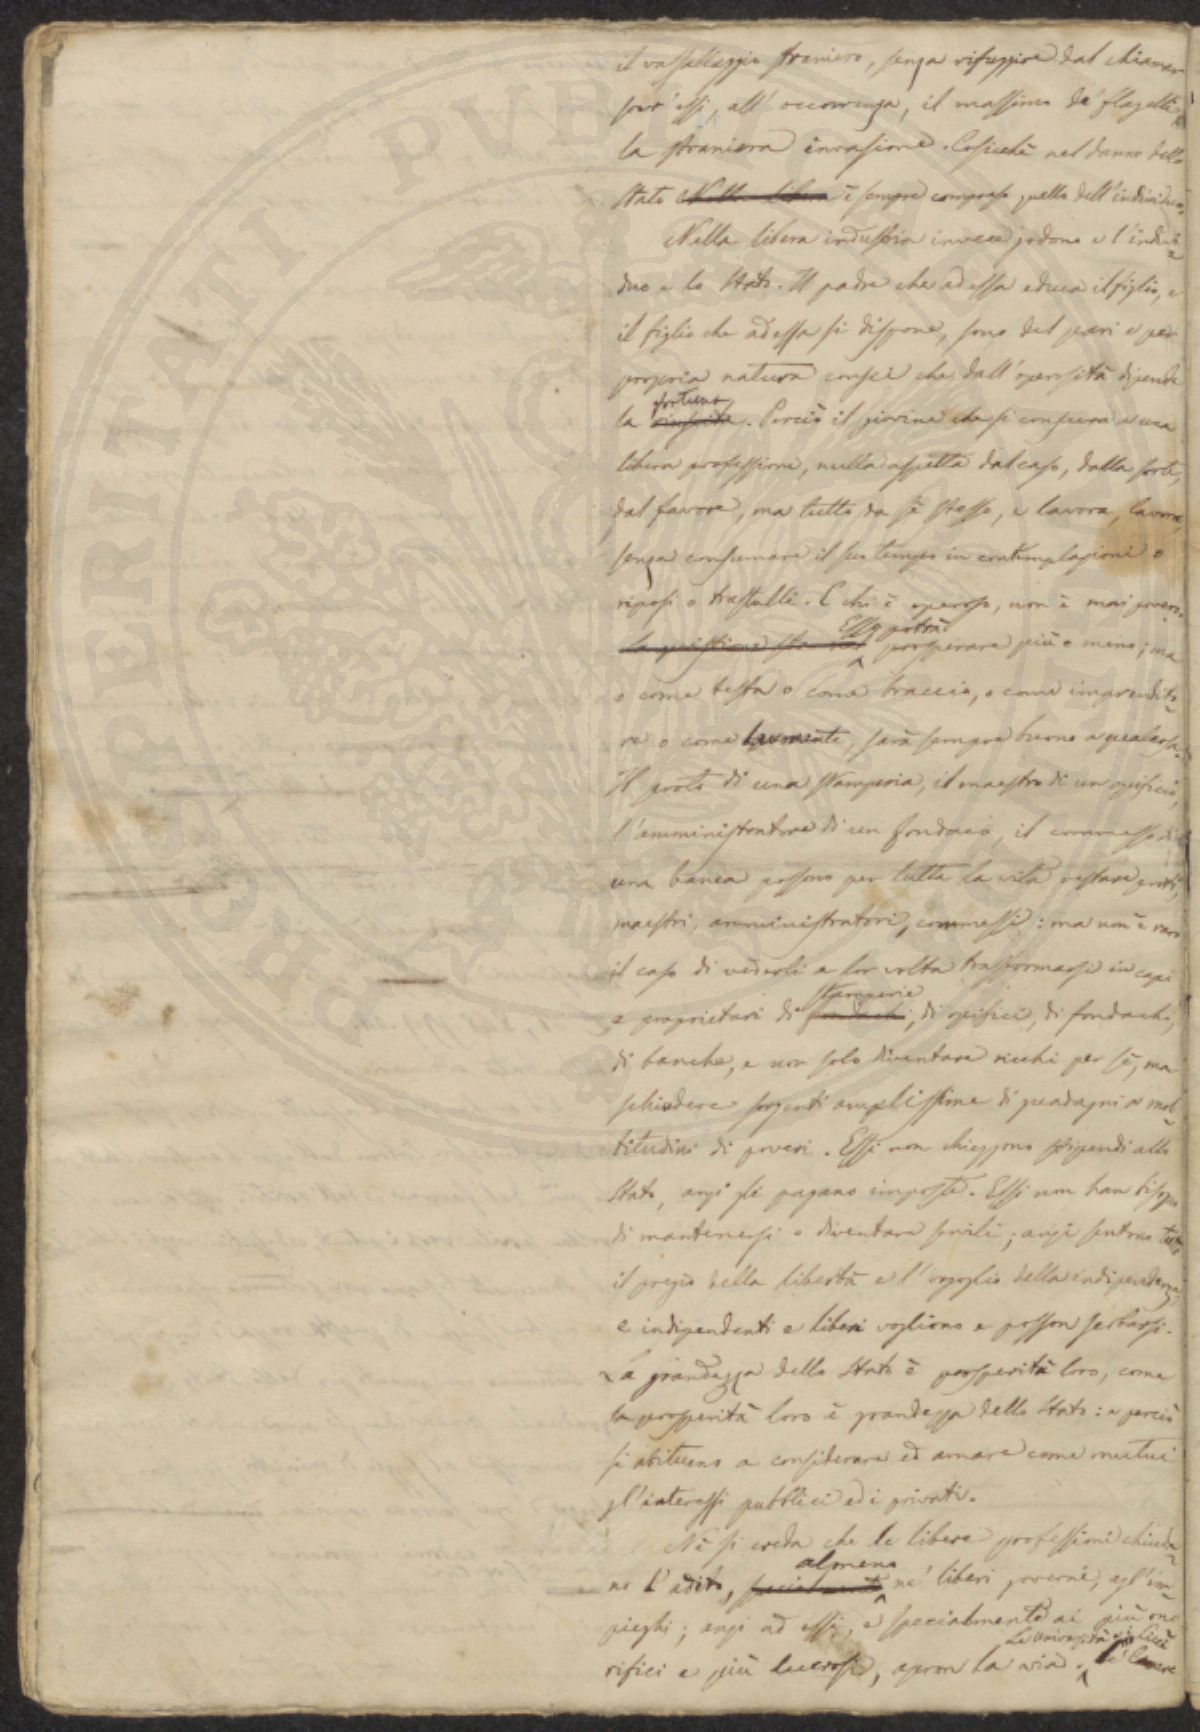 il vassallaggio straniero, senza rifuggire dal chiamar
sovr'essi, all'occorrenza, il massimo de' flagelli,
la straniera invasione. Cosicchè nel danno dello
Stato Nella libera è sempre compreso quello dell'individuo.
Nella libera industria invece godono e l'indivi-
duo e lo Stato. Il padre che ad essa educa il figlio, e
il figlio che ad essa si dispone, sono del pari e per
propria natura consci che dall'operosità dipende
fortuna
la riuscita. Perciò il giovine che si consacra a una
libera professione, nulla aspetta dal caso, dalla sorte,
dal favore, ma tutto da sè stesso, e lavora, lavora,
senza consumare il suo tempo in contemplazioni o
riposi o trastulli. E chi è operoso, non è mai povero.
Esso potrà
la quistione sta nel prosperare più o meno; ma
o come testa o come braccio, o come imprendito-
re o come lavorante, sarà sempre buono a qualcosa.
Il proto di una stamperia, il maestro di un opificio,
l'amministratore di un fondaco, il commesso di
una banca possono per tutta la vita restare proti,
maestri, amministratori, commessi: ma non è raro
il caso di vederli a lor volta trasformarsi in capi
stamperie
e proprietari di fondachi, di opifici, di fondachi,
di banche, e non solo diventare ricchi per sè, ma
schiudere sorgenti amplissime di guadagni a mol-
titudini di poveri. Essi non chieggono stipendi allo
Stato, anzi gli pagano imposte. Essi non han bisogno
di mantenersi o diventare servili; anzi sentono tutto
il pregio della libertà e l'orgoglio della indipendenza;
e indipendenti e liberi vogliono e posson serbarsi.
La grandezza dello Stato è prosperità loro, come
la prosperità loro è grandezza dello Stato: e perciò
si abituano a considerare ed amare come mutui
gl'interessi pubblici ed i privati.
Nè si creda che le libere professioni chiuda-
almeno
no l'adito, specialmente ne' liberi governi, agl'im-
pieghi; anzi ad essi, e specialmente ai più ono
Le Università
rifici e più lucrosi, apron la via.
PROSPERITATI PUBLICAE